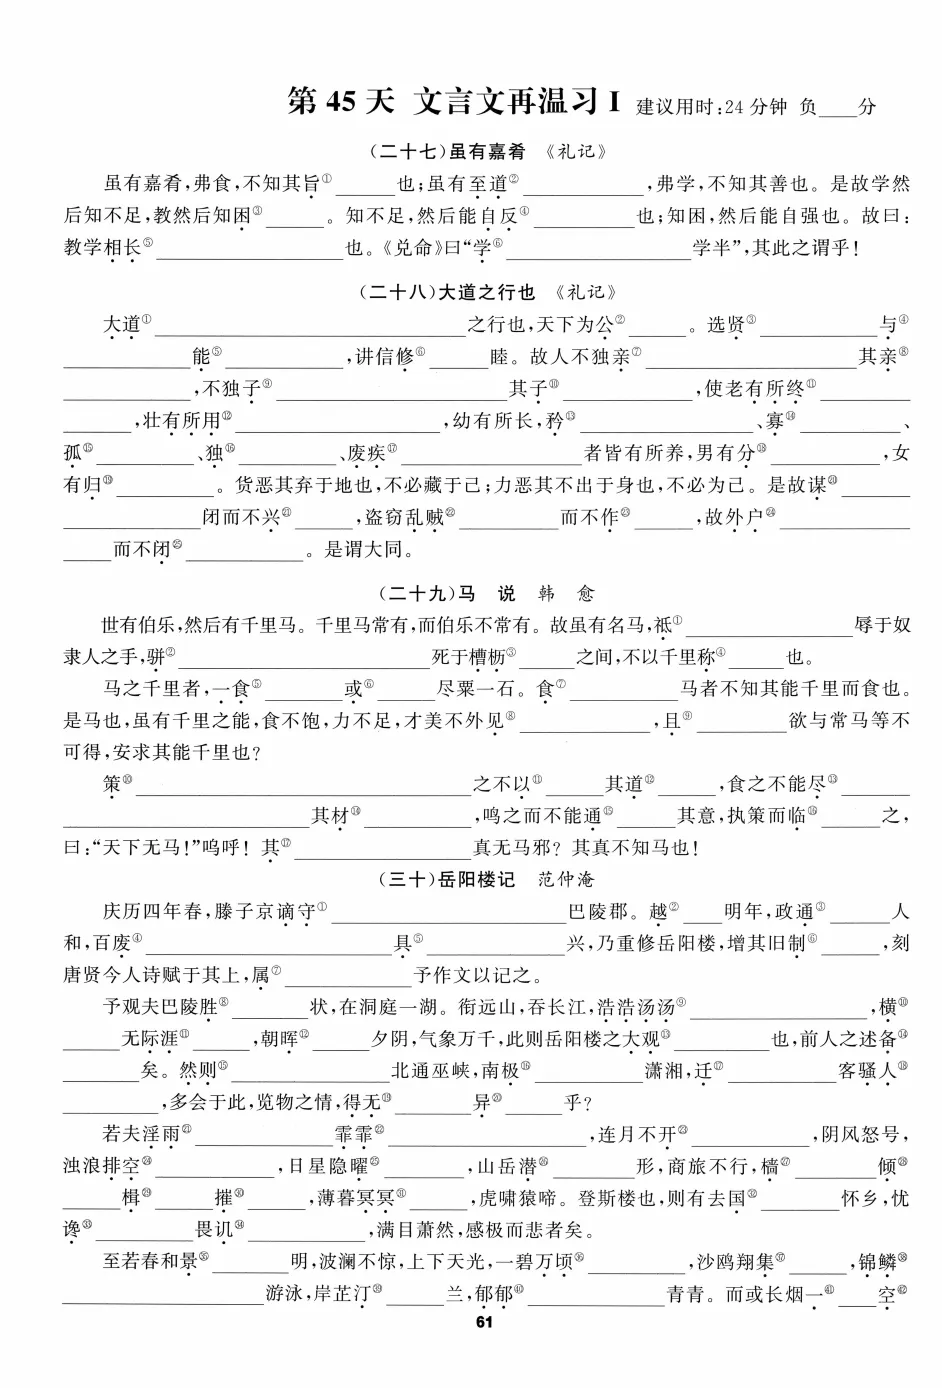 第 45 天 文言文再温习 Ⅰ 建议用时:24 分钟 负____分
(二十七)虽有嘉肴 《礼记》
虽有嘉肴,弗食,不知其旨①______也;虽有至道②____________,弗学,不知其善也。是故学然
后知不足,教然后知困③______。知不足,然后能自反④__________也;知困,然后能自强也。故曰:
教学相长⑤__________________也。《兑命》曰“学⑥__________________学半”,其此之谓乎!
(二十八)大道之行也 《礼记》
大道①______________________________之行也,天下为公②______。选贤③____________与④
____________能⑤____________,讲信修⑥______睦。故人不独亲⑦____________________其亲⑧
____________,不独子⑨______________________其子⑩____________,使老有所终⑪________
______,壮有所用⑫____________________,幼有所长,矜⑬________________、寡⑭__________、
孤⑮__________、独⑯__________、废疾⑰__________________者皆有所养,男有分⑱__________,女
有归⑲__________。货恶其弃于地也,不必藏于己;力恶其不出于身也,不必为己。是故谋⑳______
____________闭而不兴㉑______,盗窃乱贼㉒__________而不作㉓______,故外户㉔____________
____而不闭㉕____________。是谓大同。
(二十九)马 说 韩 愈
世有伯乐,然后有千里马。千里马常有,而伯乐不常有。故虽有名马,祗①________________辱于奴
隶人之手,骈②________________________死于槽枥③______之间,不以千里称④______也。
马之千里者,一食⑤________或⑥______尽粟一石。食⑦__________马者不知其能千里而食也。
是马也,虽有千里之能,食不饱,力不足,才美不外见⑧____________,且⑨________欲与常马等不
可得,安求其能千里也?
策⑩________________________________之不以⑪______其道⑫______,食之不能尽⑬______
________________________其材⑭__________,鸣之而不能通⑮______其意,执策而临⑯______之,
曰:“天下无马!”呜呼!其⑰________________真无马邪?其真不知马也!
(三十)岳阳楼记 范仲淹
庆历四年春,滕子京谪守①______________________巴陵郡。越②____明年,政通③______人
和,百废④________________________具⑤______________兴,乃重修岳阳楼,增其旧制⑥______,刻
唐贤今人诗赋于其上,属⑦____________予作文以记之。
予观夫巴陵胜⑧________状,在洞庭一湖。衔远山,吞长江,浩浩汤汤⑨________________,横⑩
______无际涯⑪______,朝晖⑫______夕阴,气象万千,此则岳阳楼之大观⑬__________也,前人之述备⑭
________矣。然则⑮________________北通巫峡,南极⑯__________潇湘,迁⑰__________客骚人⑱
__________,多会于此,览物之情,得无⑲________异⑳______乎?
若夫淫雨㉑______________霏霏㉒____________________,连月不开㉓____________,阴风怒号,
浊浪排空㉔____________,日星隐曜㉕________,山岳潜㉖________形,商旅不行,樯㉗________倾㉘
______楫㉙______摧㉚______,薄暮冥冥㉛______,虎啸猿啼。登斯楼也,则有去国㉜________怀乡,忧
谗㉝__________畏讥㉞____________,满目萧然,感极而悲者矣。
至若春和景㉟________明,波澜不惊,上下天光,一碧万顷㊱__________,沙鸥翔集㊲______,锦鳞㊳
____________________游泳,岸芷汀㊴______兰,郁郁㊵______________青青。而或长烟一㊶____空㊷
61